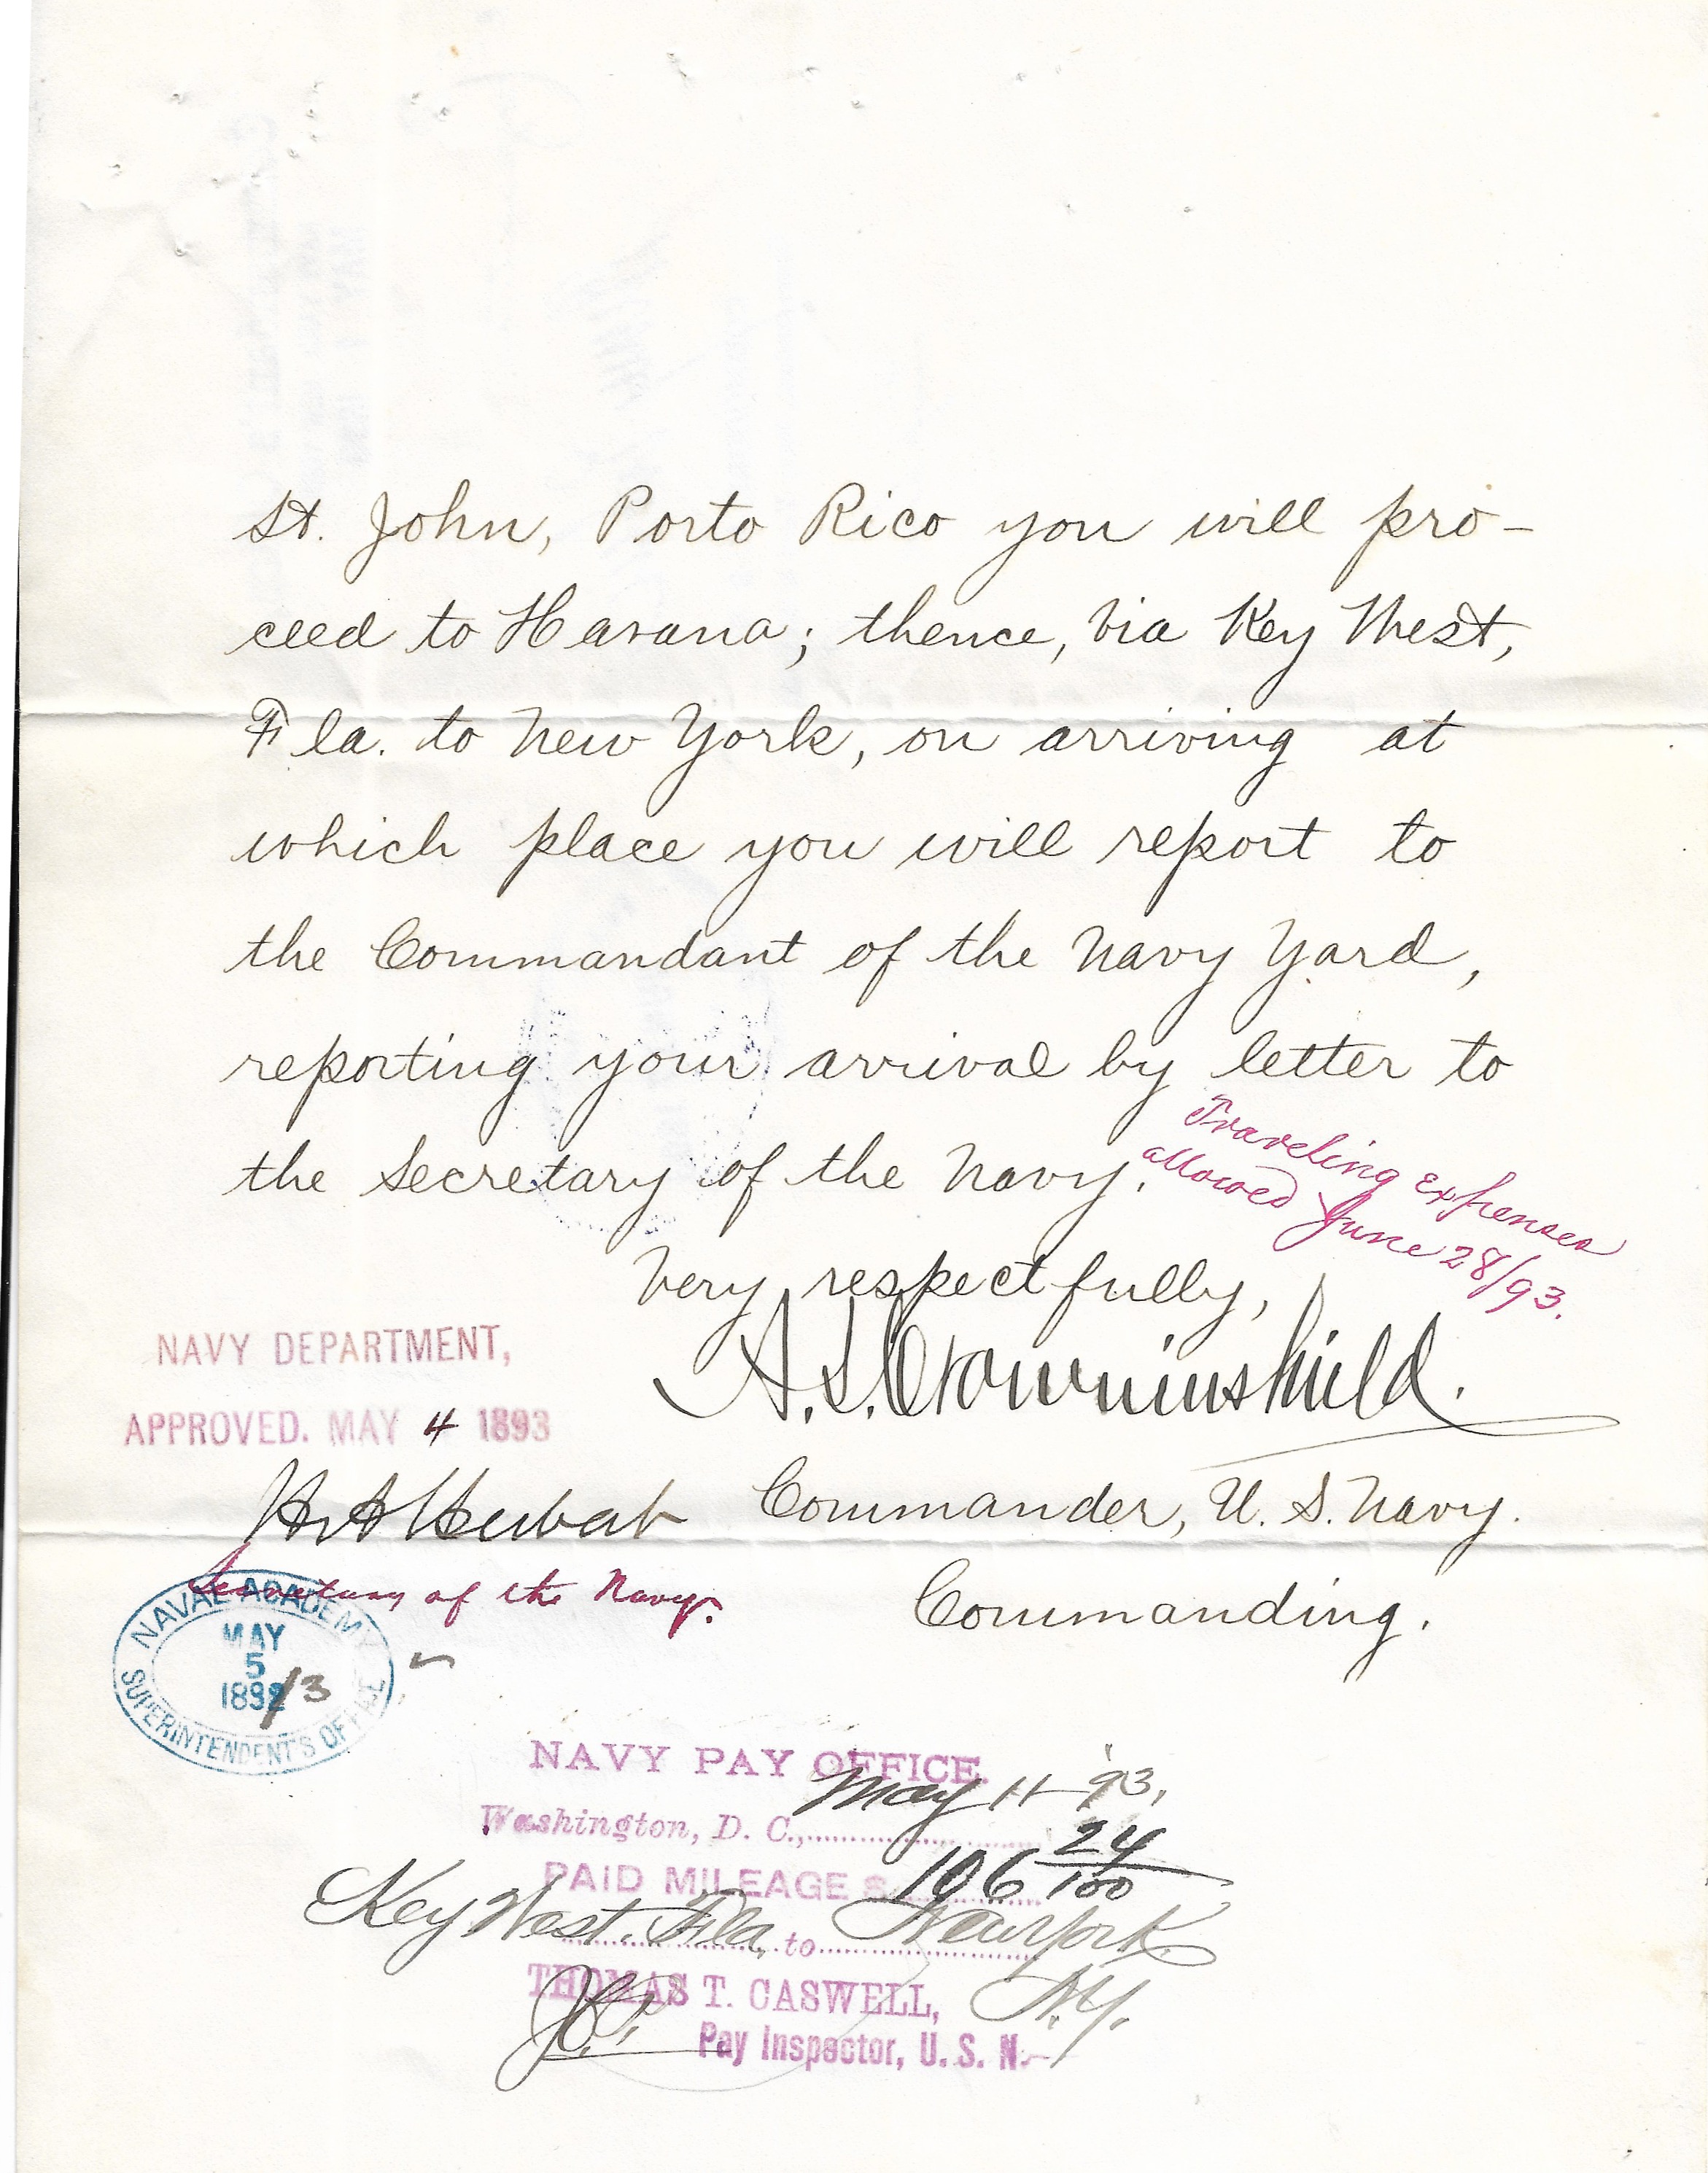 St. John, Porto Rico you will pro-
ceed to Havana; thence, via Key West,
Fla. to New York, on arriving at
which place you will report to
the Commandant of the Navy Yard,
reporting your arrival by letter to
the Secretary of the Navy.
Traveling expenses
allowed June 28/93.
Very respectfully,
A. S. Crowninshield.
Commander, U. S. Navy.
Commanding.
NAVY DEPARTMENT,
APPROVED. MAY 4 1893
H A Herbert
Secretary of the Navy.
NAVAL ACADEMY
MAY
5
1892/3
SUPERINTENDENT'S OFFICE
NAVY PAY OFFICE.
Washington, D. C., May 11 - 93.
PAID MILEAGE $ 106 24/100
Key West. Fla. to New York
N.Y.
THOMAS T. CASWELL,
Pay Inspector, U. S. N.